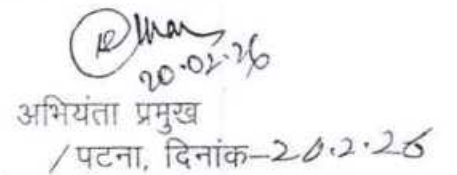 20.02.26
अभियंता प्रमुख
/ पटना, दिनांक–20.2.26